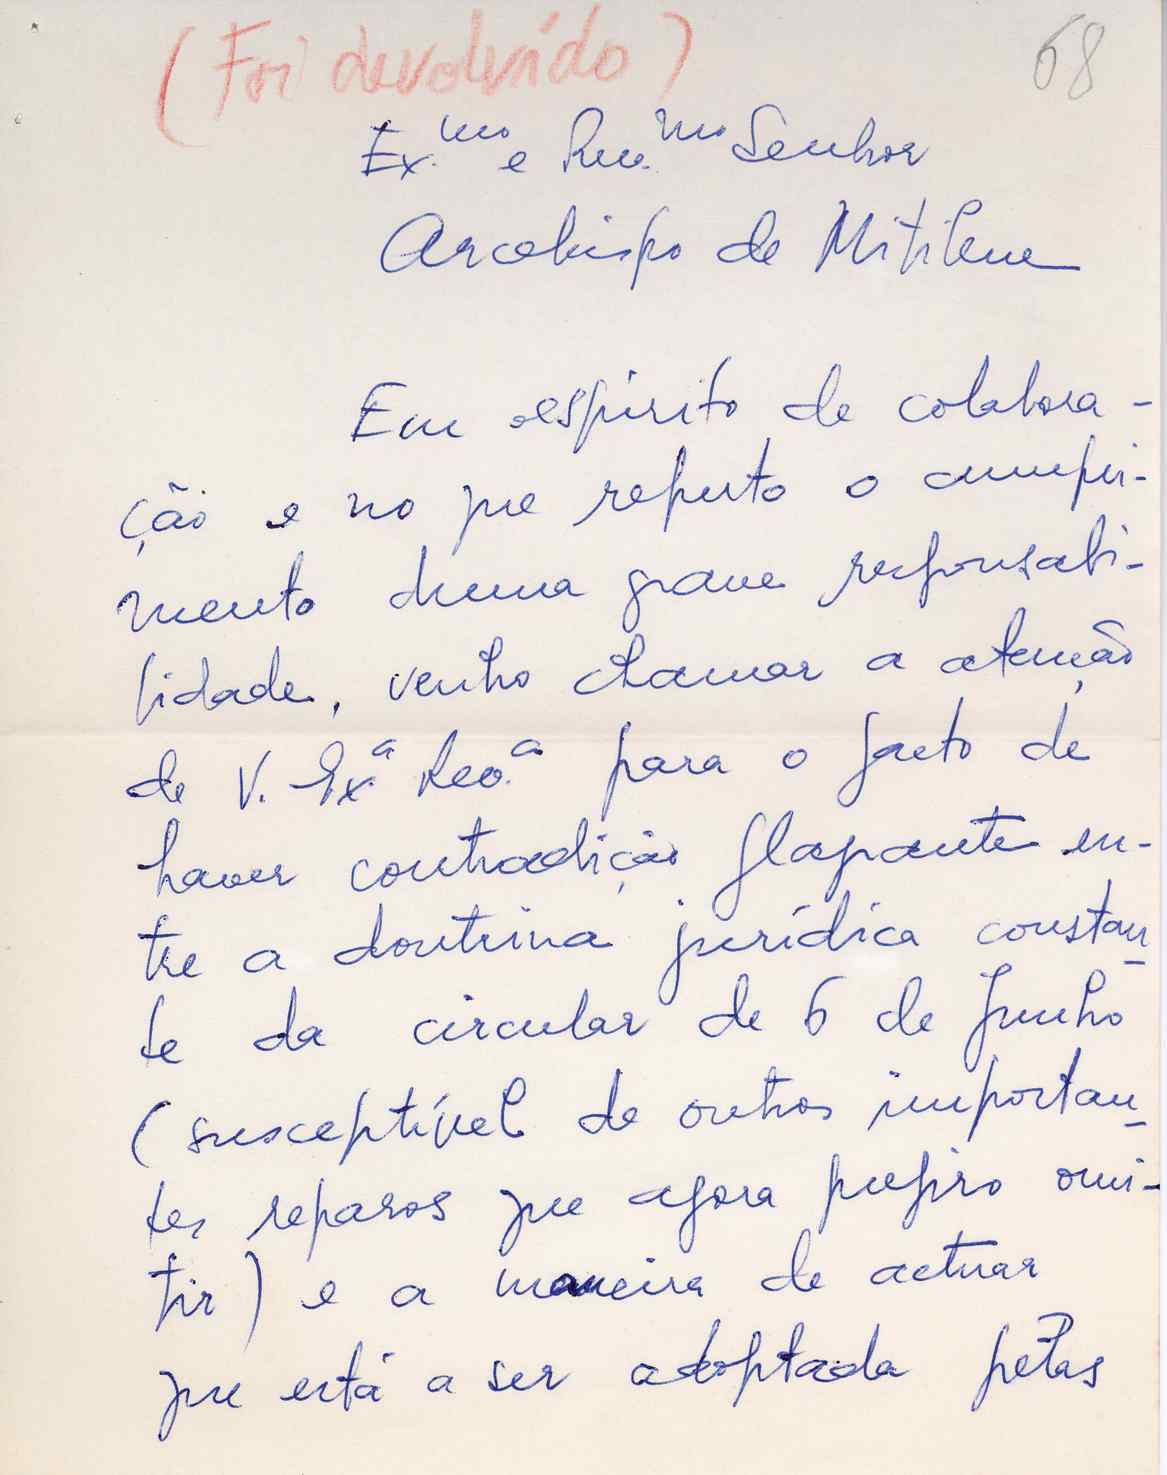 (Foi devolvido)
68
Ex.mo e Rev.mo Senhor
Arcebispo de Mitilene
Em espírito de colabora-
ção e no que reputo o cumpri-
mento duma grave responsabi-
lidade, venho chamar a atenção
de V. Ex.a Rev.a para o facto de
haver contradição flagrante en-
tre a doutrina jurídica constan-
te da circular de 6 de Junho
(susceptível de outros importan-
tes reparos que agora prefiro omi-
tir) e a maneira de actuar
que está a ser adoptada pelas